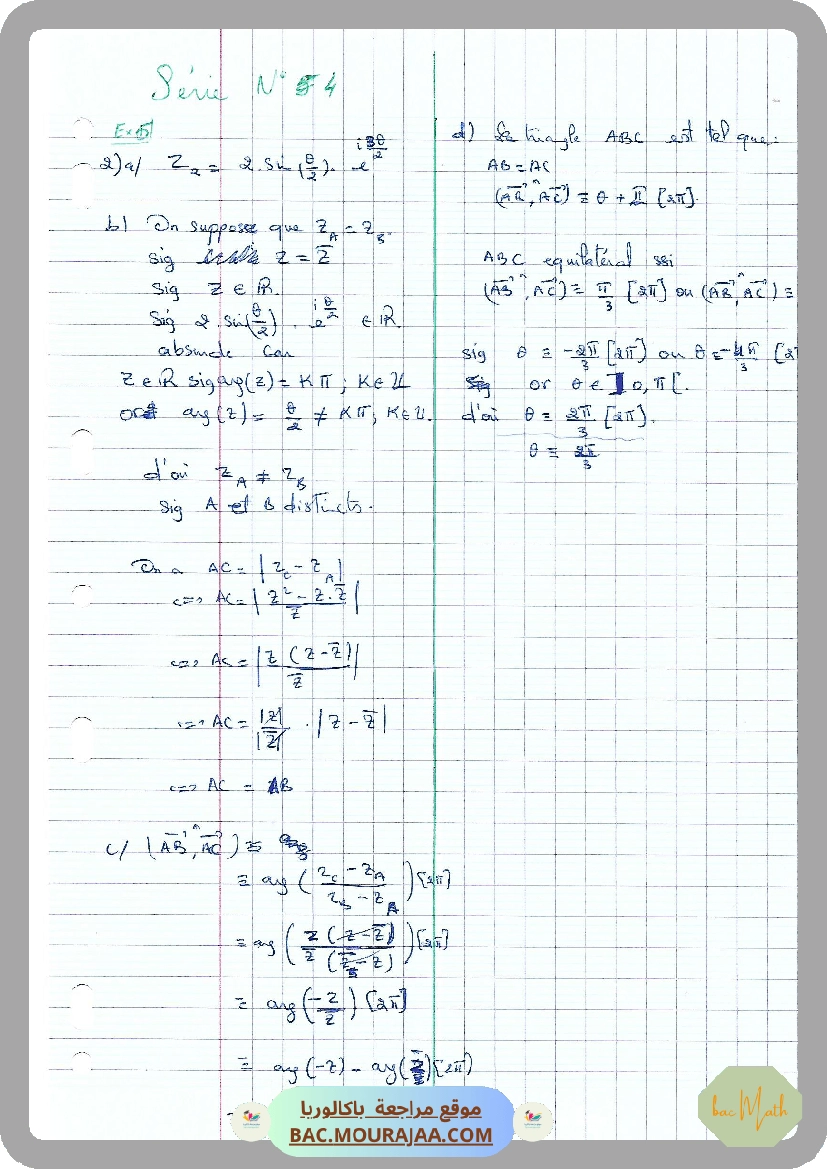 Série N° 4
Ex 5
2) a/ Z₂ = 2. sin(θ/2). e^(i3θ/2)
b) On suppose que z_A = z_B.
sig z = z̄
sig z ∈ ℝ.
Sig 2. sin(θ/2) . e^(iθ/2) ∈ ℝ
absurde car
z ∈ ℝ sig arg(z) = Kπ ; K∈ℤ
or arg(z) = θ/2 ≠ Kπ ; K∈ℤ.
d'où z_A ≠ z_B
sig A et B distincts.
On a AC = |z_C - z_A|
<=> AC = |(z² - z.z̄)/z̄|
<=> AC = |z (z - z̄)/z̄|
<=> AC = |z|/|z̄| . |z - z̄|
<=> AC = AB
c/ (AB⃗ , AC⃗) ≡
≡ arg((z_C - z_A)/(z_B - z_A)) [2π]
≡ arg(z (z - z̄)/z̄ (z̄ - z)) [2π]
≡ arg(-z/z̄) [2π]
≡ arg(-z) - arg(z̄) [2π]
d) Le triangle ABC est tel que:
AB = AC
(AB⃗ , AC⃗) ≡ θ + π [2π].
ABC equilatéral ssi
(AB⃗ , AC⃗) ≡ π/3 [2π] ou (AB⃗ , AC⃗) ≡
sig θ ≡ -2π/3 [2π] ou θ ≡ -4π/3 [2
or θ ∈ ]0, π[.
d'où θ ≡ 2π/3 [2π].
θ ≡ 2π/3
موقع مراجعة باكالوريا
BAC.MOURAJAA.COM
bac Math